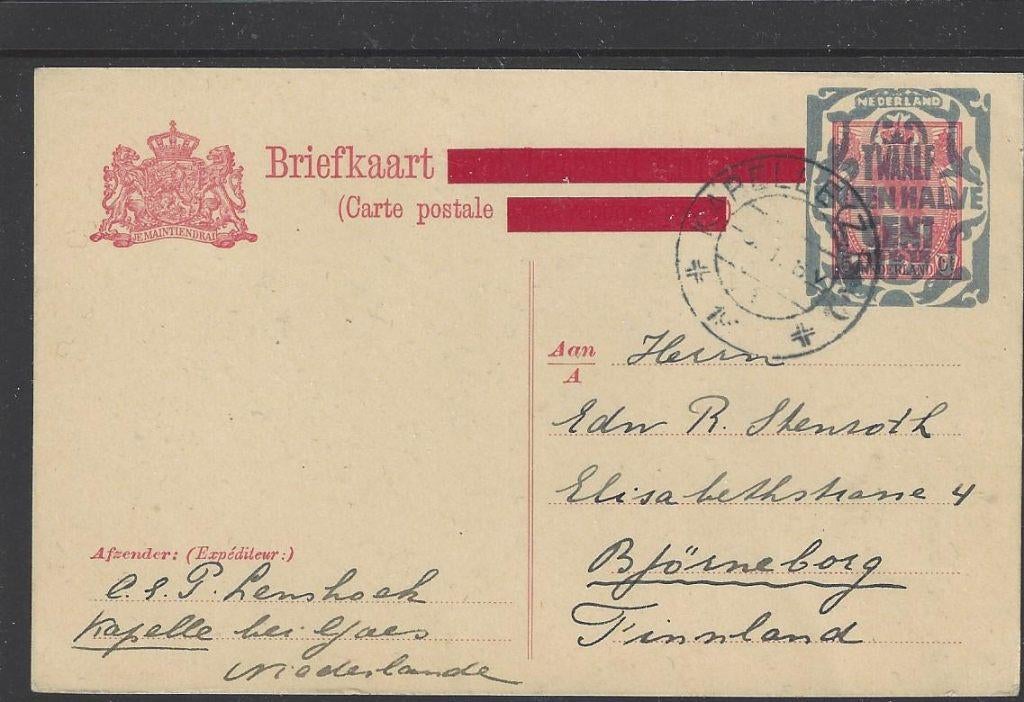 NEDERLAND
TWAALF
EN HALVE
CENT
NEDERLAND Ct
JE MAINTIENDRAI
Briefkaart
(Carte postale
KAPELLE
Aan
A
Herrn
Edw R. Stenroth
Elisabethstrasse 4
Björneborg
Finnland
Afzender: (Expéditeur:)
C. S. P. Lenshoek
Kapelle bei Goes
Niederlande